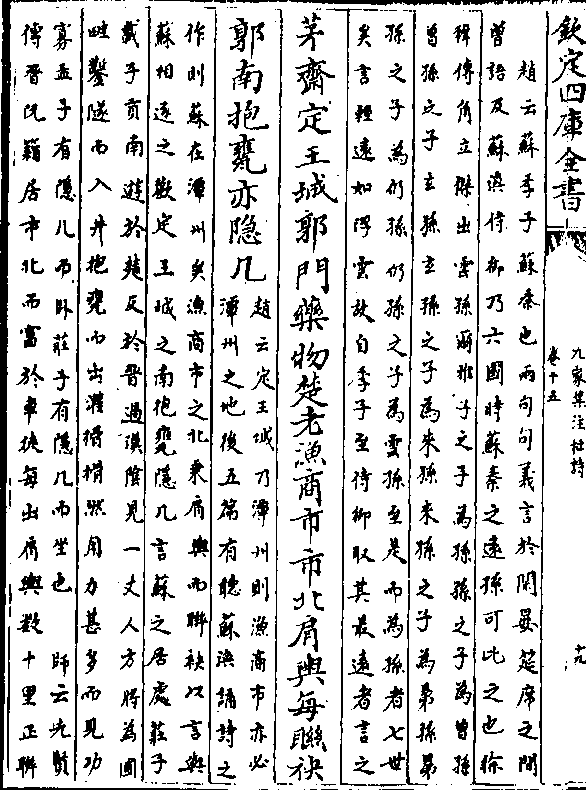 欽定四庫全書
九家集注杜詩
卷十五
十九
趙云蘇季子蘇秦也兩句句義言於閑晏筵席之間
曾語及蘇渙侍御乃六國時蘇秦之遠孫可比之也徐
穉傳角立傑出雲孫爾雅子之子為孫孫之子為曾孫
曾孫之子玄孫玄孫之子為來孫來孫之子為晜孫晜
孫之子為仍孫仍孫之子為雲孫至是而為孫者七世
矣言輕遠如浮雲故自季子至侍御取其最遠者言之
茅齋定王城郭門藥物楚老漁商市市北肩輿每聯袂
郭南抱甕亦隱几
趙云定王城乃潭州則漁商市亦必
潭州之地後五篇有聽蘇渙誦詩之
作則蘇在潭州矣漁商市之北乘肩輿而聯袂以言與
蘇相逐之歡定王城之南抱甕隱几言蘇之居處莊子
載子貢南遊於楚反於晉過漢陰見一丈人方將為圃
畦鑿隧而入井抱甕而出灌搰搰然用力甚多而見功
寡孟子有隱几而卧莊子有隱几而坐也
師云先賢
傳晉阮籍居市北而富於車徒每出肩輿數十里正聯